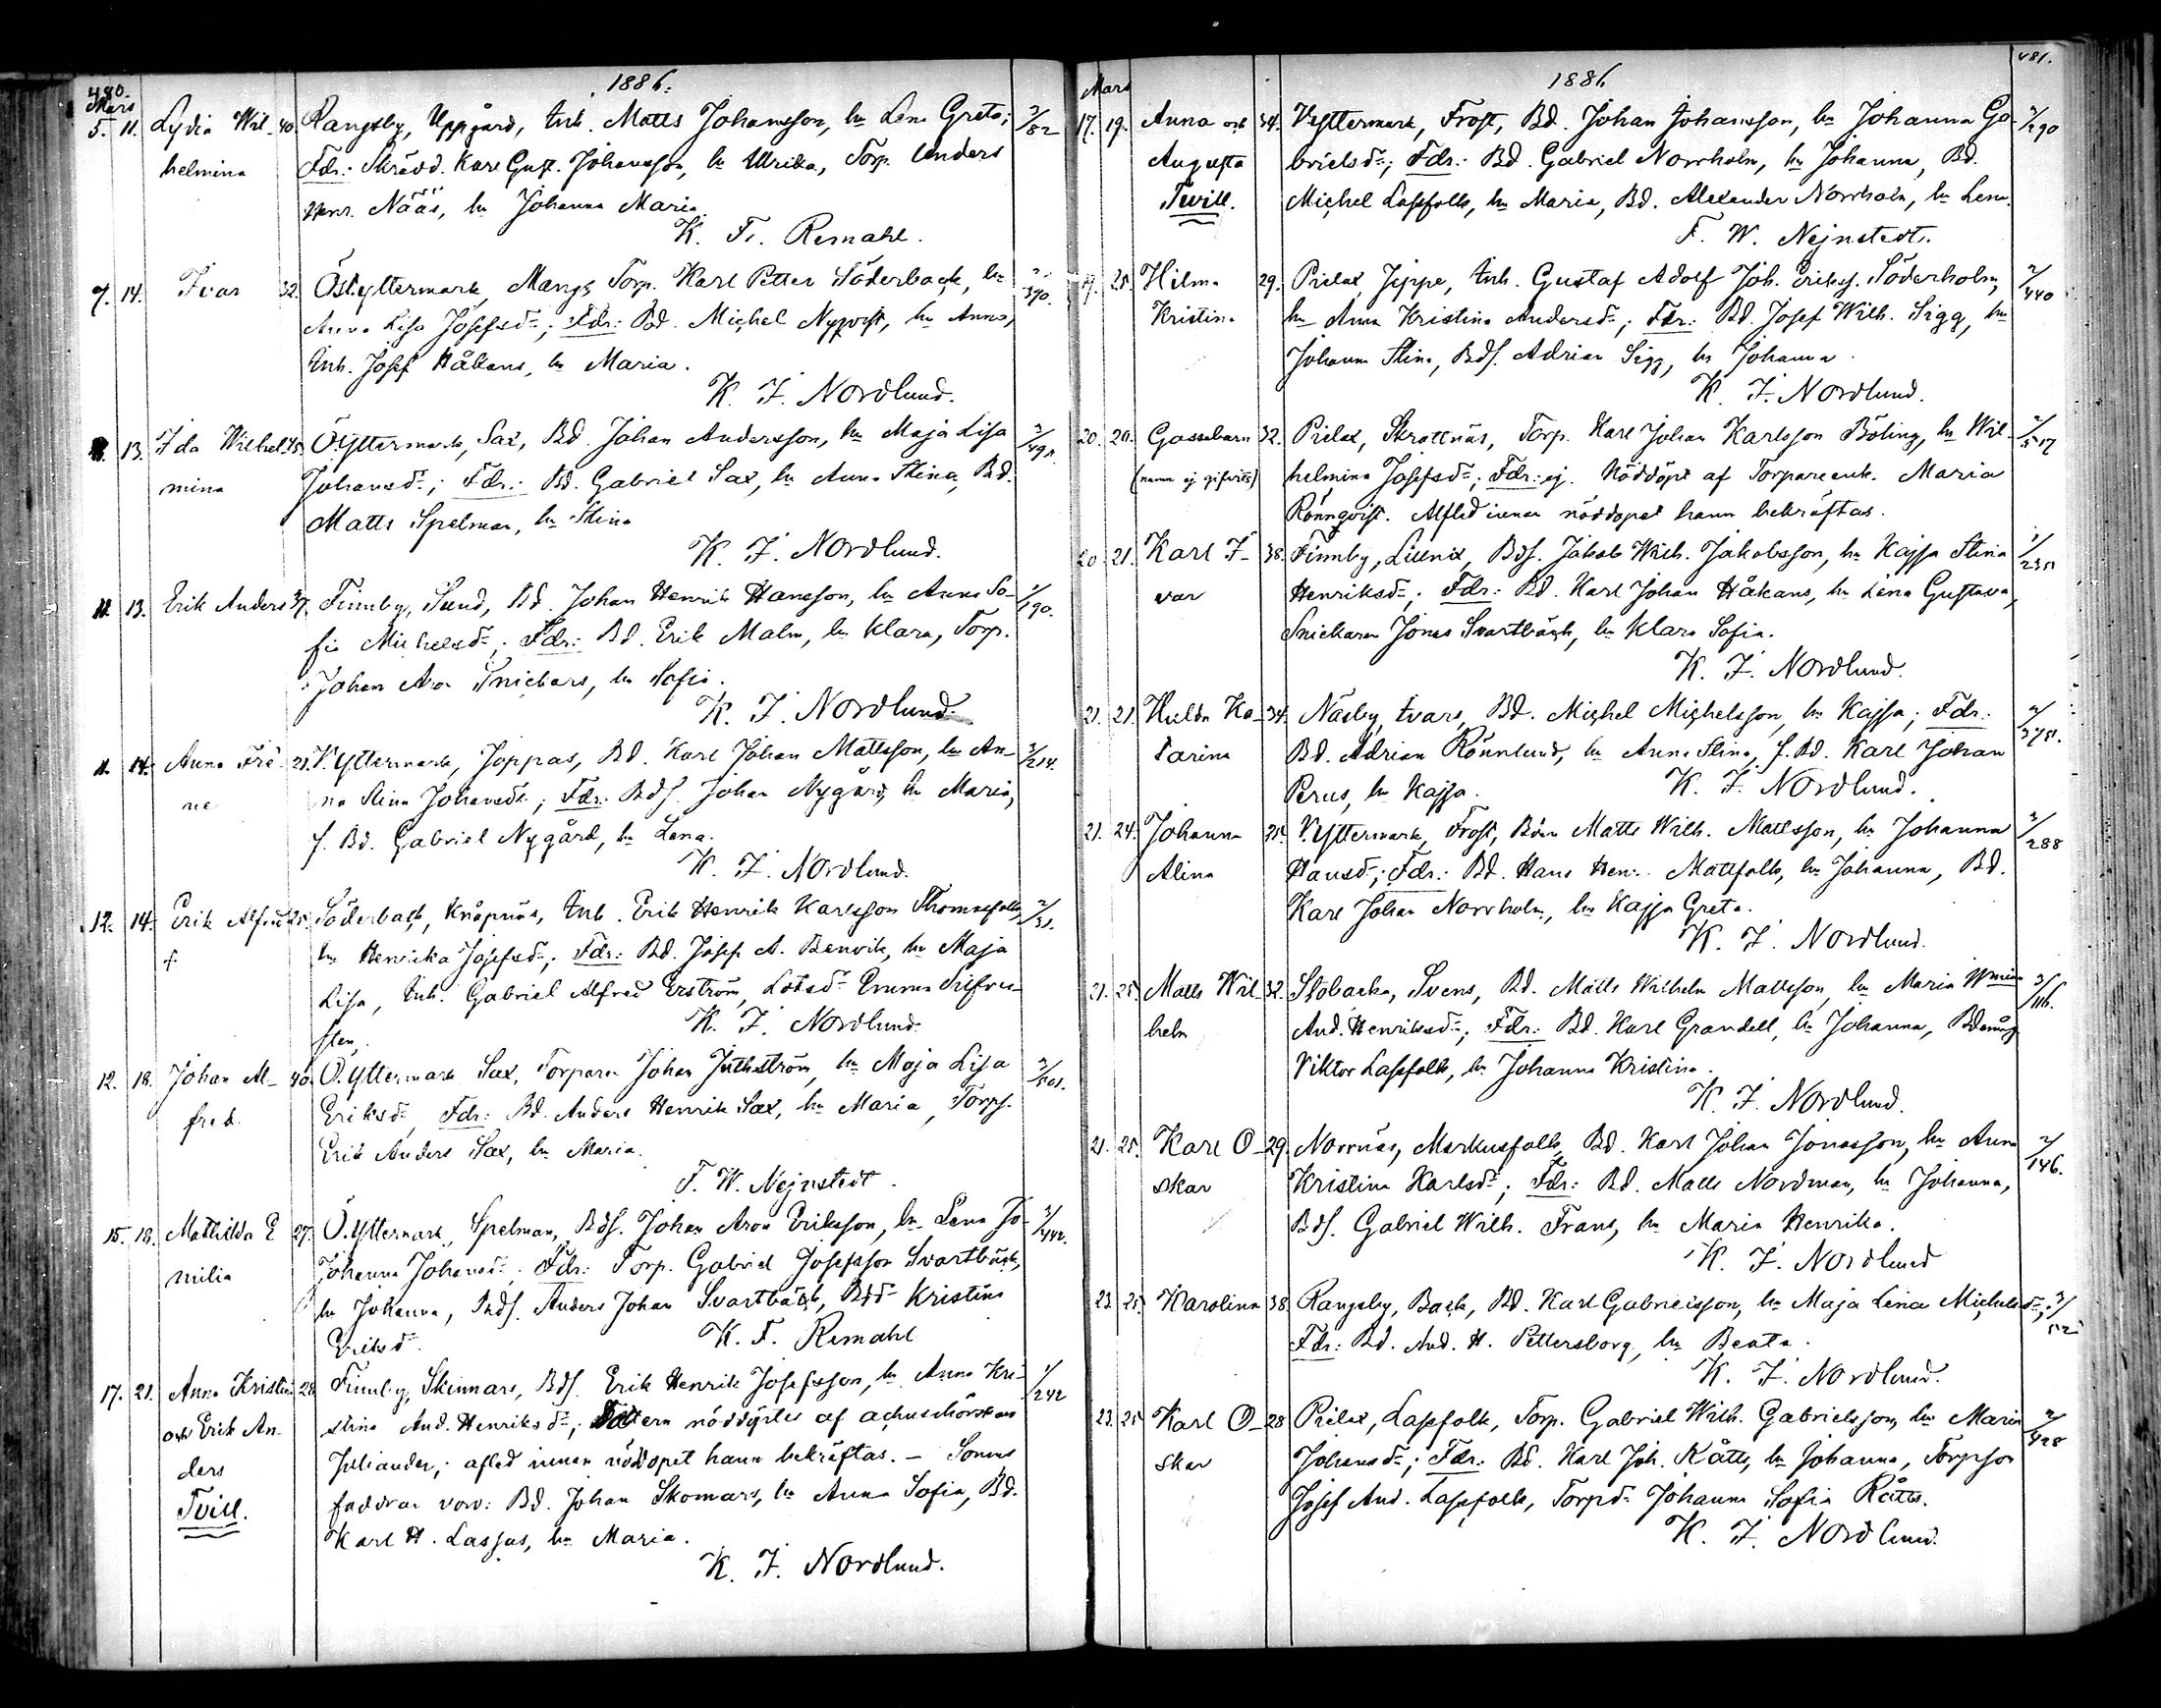 480.
1886.
Mars
5. 11. Lydia Wil- 40. Rangsby, Uppgård, Inh. Matts Johansson, hu Lena Greta; 2/82
helmina Fdr.: Skrädd. Karl Gust. Johansson, hu Ulrika, Torp. Anders
Henr. Nääs, hu Johanna Maria.
K. F. Remahl.
7. 14. Ivar 32. Öst.yttermark, Mangs, Torp. Karl Petter Söderback, hu 390.
Anna Lisa Josefsd:; Fdr.: Bd. Michel Nyqvist, hu Anna,
Inh. Josef Håkans, hu Maria.
K. I. Nordlund.
13. Ida Wilhel- 45. Ö.Yttermark, Sax, Bd. Johan Andersson, hu Maja Lisa
mina Johansd:; Fdr.: Bd. Gabriel Sax, hu Anna Stina, Bd.
Matts Spelman, hu Stina
K. I. Nordlund.
11. 13. Erik Anders 37. Finnby, Sund, Bd. Johan Henrik Hansson, hu Anna So- 1/190.
fia Michelsd:; Fdr.: Bd. Erik Malm, hu Klara, Torp.
Johan Aron Snickars, hu Sofia.
K. I. Nordlund.
11. 14. Anna Irè- 21. V.Yttermark, Joppas, Bd. Karl Johan Mattsson, hu An- 3/214.
ne na Stina Johansd:; Fdr. Bdf. Johan Nygård, hu Maria,
f. Bd. Gabriel Nygård, hu Lena.
K. I. Nordlund.
12. 14. Erik Alfred 25. Söderback, Knåpnäs, Inh. Erik Henrik Karlsson Thomasfolk, 2/31.
f. hu Henrika Josefsd:; Fdr: Bd. Josef A. Benvik, hu Maja
Lisa, Inh. Gabriel Alfred Erström, Lotsd: Emma Silfver-
sten.
K. I. Nordlund.
12. 18. Johan Al- 40. Ö.Yttermark Sax, Torparen Johan Juthström, hu Maja Lisa 3/501.
fred. Eriksd:, Fdr: Bd. Anders Henrik Sax, hu Maria, Torps.
Erik Anders Sax, hu Maria.
F. W. Nejnstedt.
15. 18. Mathilda E 27. Ö.Yttermark, Spelman, Bdf. Johan Aron Eriksson, hu Lena Jo- 3/442.
milia Johanna Johansd:. Fdr: Torp. Gabriel Josefsson Svartbäck,
hu Johanna, Bdf. Anders Johan Svartbäck, Bdd: Kristina
Eriksd:.
K. F. Remahl
17. 21. Anna Kristina 28. Finnby, Skinnars, Bdf. Erik Henrik Josefsson, hu Anna Kri- 1/242
och Erik An- stina And. Henriksd:; nöddöptes af
ders Juliander; afled innan nöddopet hann bekräftas. – Sonens
Tvill. faddrar voro: Bd. Johan Skomars, hu Anna Sofia, Bd.
Karl H. Lassus, hu Maria.
K. I. Nordlund.
481.
1886
Mars
17. 19. Anna och 34. V.Yttermark, Frost, Bd. Johan Johansson, hu Johanna Ga- 3/290
Augusta brielsd:; Fdr.: Bd. Gabriel Norrholm, hu Johanna, Bd.
Twill. Michel Lassfolk, hu Maria, Bd. Alexander Norrholm, hu Lena.
F. W. Nejnstedt.
19. 25. Hilma 29. Pielax, Jeppe, Inh. Gustaf Adolf Joh. Eriksf. Söderholm, 2/440
Kristina hu Anna Kristina Andersd:; Fdr: Bd. Josef Wilh. Sigg, hu
Johanna Stina, Bdf. Adrian Sigg, hu Johanna.
K. I. Nordlund.
20. 20. Gossebarn 32. Pielax, Skrattnäs, Torp. Karl Johan Karlsson Böling, hu Wil- 2/517
(namn ej gifvits) helmina Josefsd:; Fdr: ej. Nöddöpt af Torpareenk. Maria
Rönnqvist. Afled innan nöddopet hann bekräftas.
20. 21. Karl I- 38. Finnby, Lillnix, Bdf. Jakob Wilh. Jakobsson, hu Kajsa Stina 1/231
var Henriksd:; Fdr: Bd. Karl Johan Håkans, hu Lena Gustava,
Snickaren Jonas Svartbäck, hu Klara Sofia.
K. I. Nordlund.
21. 21. Hulda Ka- 34. Näsby, Ivars, Bd. Michel Michelsson, hu Kajsa; Fdr: 2/371.
tarina Bd. Adrian Rönnlund, hu Anna Stina, f. Bd. Karl Johan
Perus, hu Kajsa.
K. I. Nordlund.
21. 24. Johanna 25. V.Yttermark, Frost, Bdn Matts Wilh. Mattsson, hu Johanna 3/288
Alina Hansd:; Fdr.: Bd. Hans Henr. Mattfolk, hu Johanna, Bd.
Karl Johan Norrholm, hu Kajsa Greta.
K. I. Nordlund.
21. 25. Matts Wil- 32. Stobacka, Svens, Bd. Matts Wilhelm Mattsson, hu Maria Wmina 3/116.
helm And. Henriksd:; Fdr: Bd. Karl Grandell, hu Johanna, Bdemåg
Viktor Lassfolk, hu Johanna Kristina.
K. I. Nordlund.
21. 25. Karl O- 29. Norrnäs, Markusfolk, Bd. Karl Johan Jonasson, hu Anna 2/146.
skar Kristina Karlsd:; Fdr: Bd. Matts Nordman, hu Johanna,
Bdf. Gabriel Wilh. Frans, hu Maria Henrika.
K. I. Nordlund
23. 25. Karolina 38. Rangsby, Back, Bd. Karl Gabrielsson, hu Maja Lena Michelsd:;
Fdr: Bd. And. H. Pettersborg, hu Beata.
K. I. Nordlund.
23. 25 Karl O- 28 Pielax, Lassfolk, Torp. Gabriel Wilh. Gabrielsson, hu Maria 2/428
skar Johansd:; Fdr: Bd. Karl Joh. Råtts, hu Johanna, Torpson
Josef And. Lassfolk, Torpd: Johanna Sofia Råtts.
K. I. Nordlund.